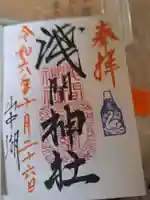 奉拝
浅間神社
令和六年十月二十六日
山中湖